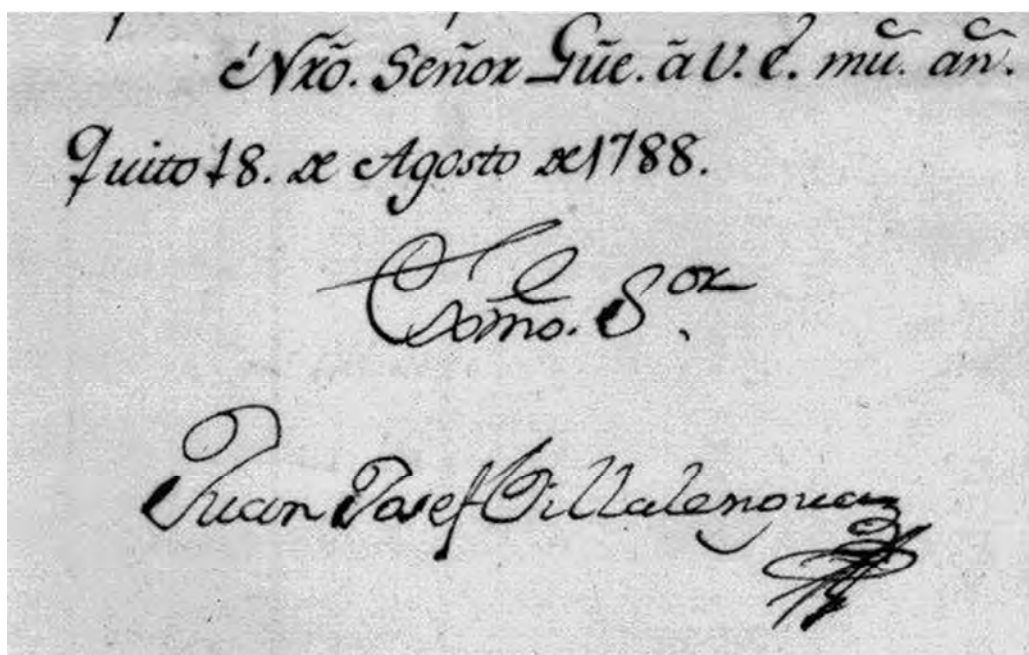 Nr̃o. Señor Gũe. ã V. E. mũ. añ.
Quito 18. de Agosto de 1788.
Exmo. S.or
Juan Josef Villalengua